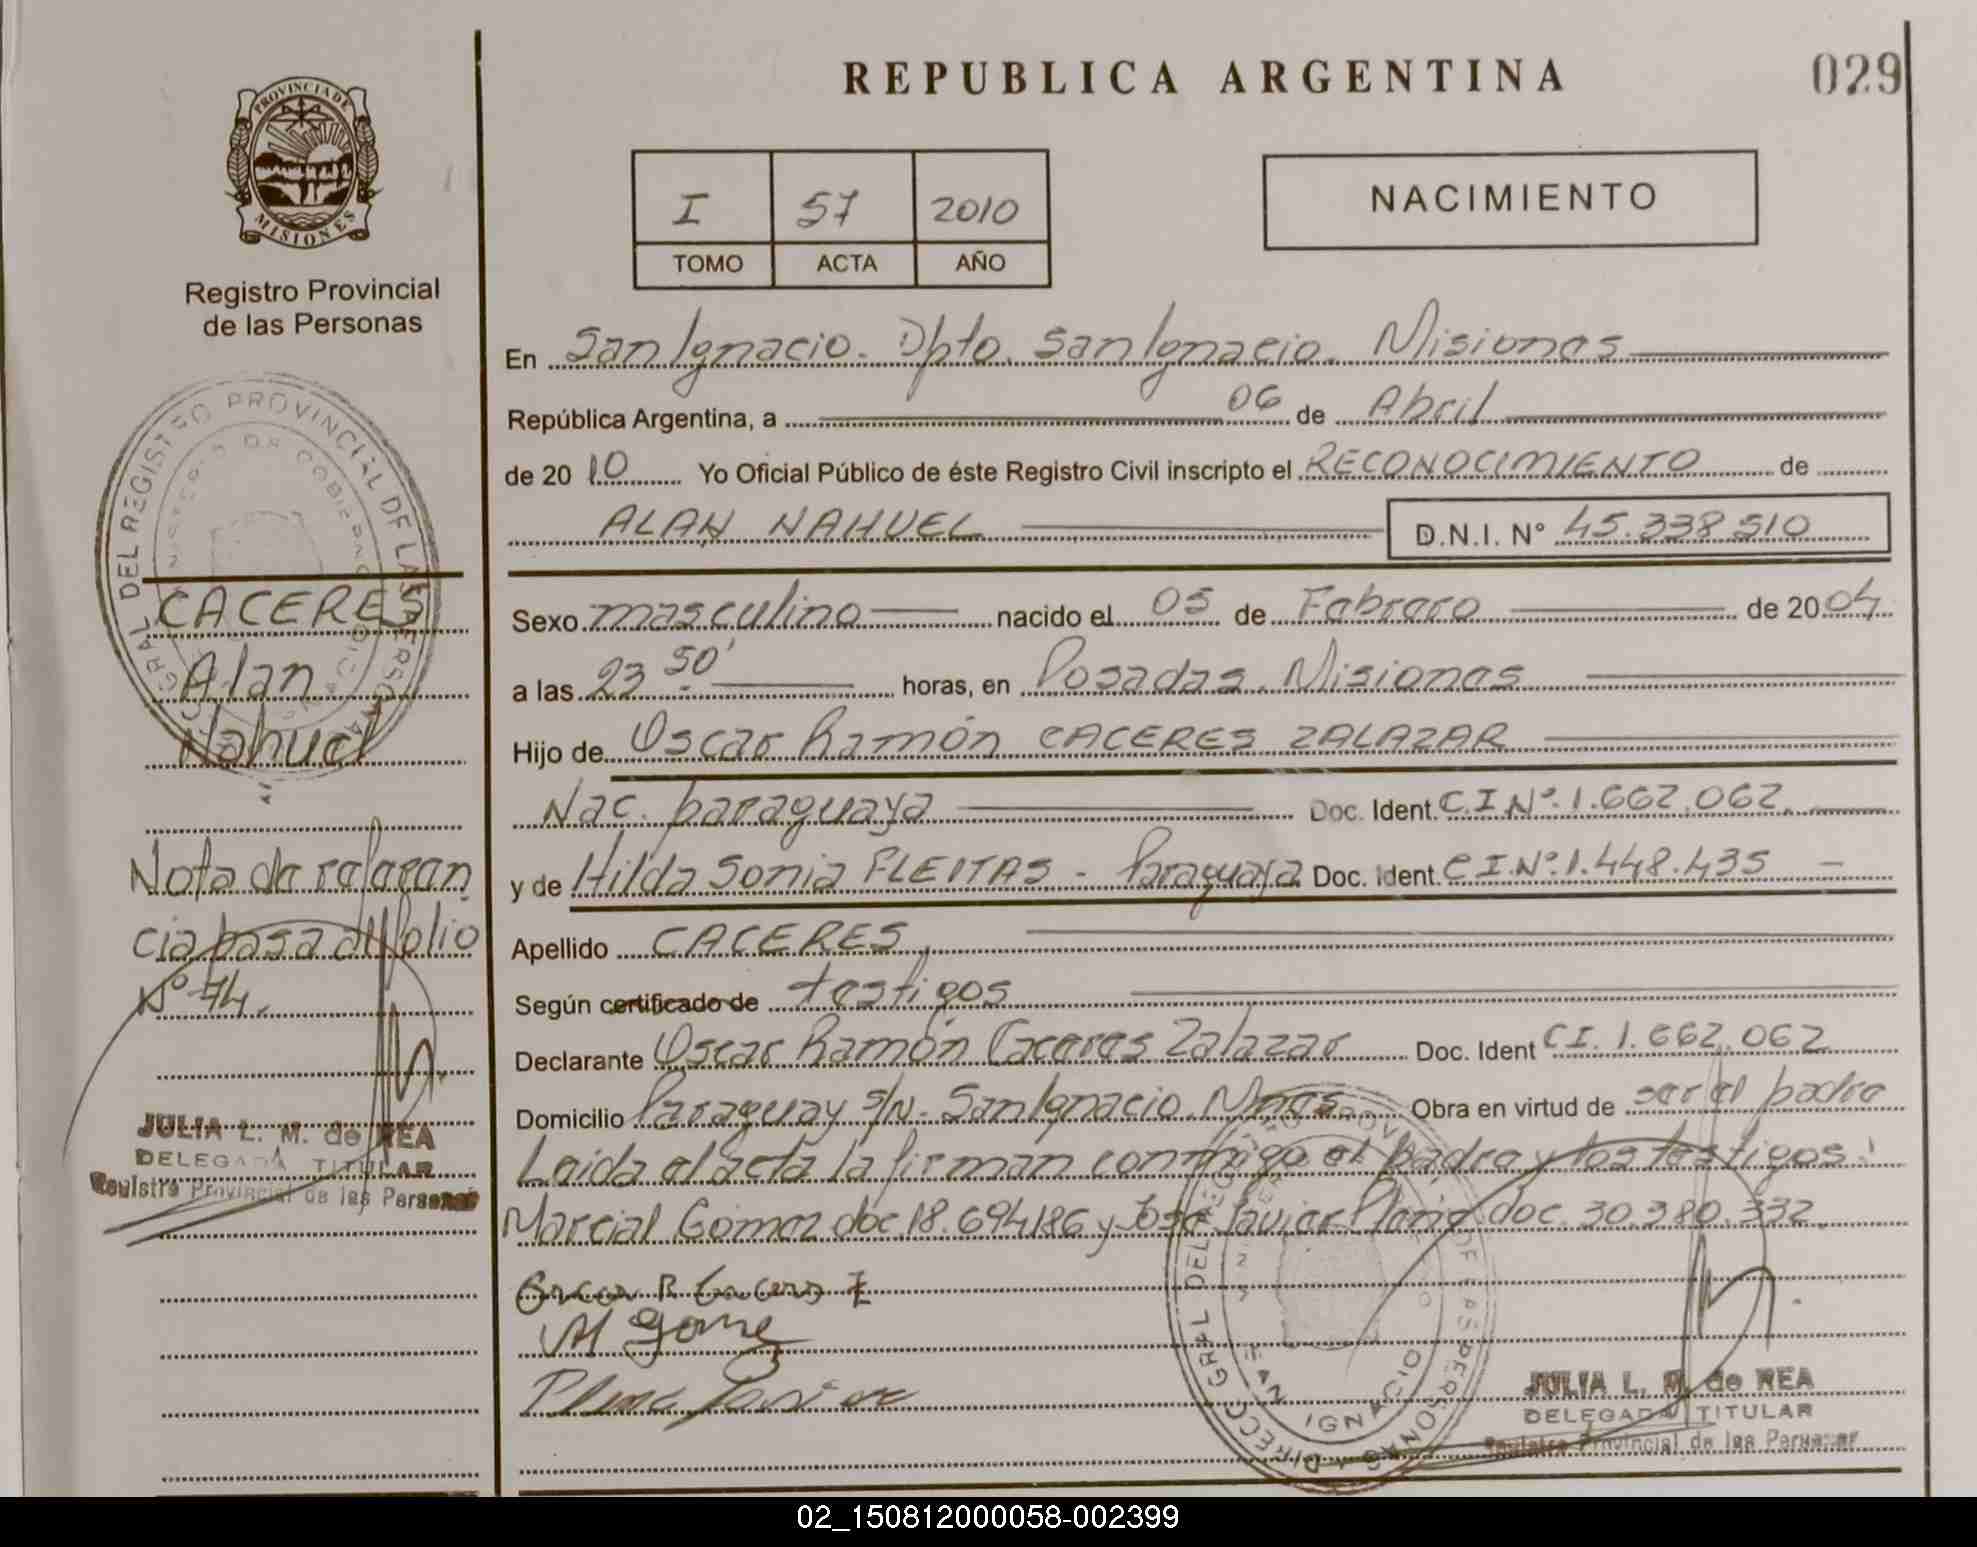 REPUBLICA ARGENTINA
029
PROVINCIA DE MISIONES
Registro Provincial
de las Personas
I 57 2010
TOMO ACTA AÑO
NACIMIENTO
En San Ignacio. Dpto. San Ignacio. Misiones
República Argentina, a 06 de Abril
de 20 10 Yo Oficial Público de éste Registro Civil inscripto el RECONOCIMIENTO de
ALAN NAHUEL D.N.I. N° 45.338.510
Sexo masculino nacido el 05 de Febrero de 2004
a las 23 50' horas, en Posadas. Misiones
Hijo de Oscar Ramón CACERES ZALAZAR
Nac. paraguaya Doc. Ident. C.I.N°.1.662.062.
y de Hilda Sonia FLEITAS - Paraguaya Doc. Ident. C.I.N°.1.448.435 -
Apellido CACERES
Según certificado de testigos
Declarante Oscar Ramón Caceres Zalazar Doc. Ident C.I. 1.662.062
Domicilio Paraguay s/N. San Ignacio. Mnes. Obra en virtud de ser el padre
Leida el acta la firman conmigo el padre y los testigos:
Marcial Gomez doc. 18.694186 y José Javier doc. 30.380.332
CACERES
Alan
Nahuel
Nota de referen
cia pasa al folio
N° 74.
JULIA L. M. de REA
DELEGADA TITULAR
Registro Provincial de las Personas
M Gome
JULIA L. M. de REA
DELEGADA TITULAR
Registro Provincial de las Personas
DIRECC GRAL DEL REGISTRO PROVINCIAL DE LAS PERSONAS
SAN IGNACIO
02_150812000058-002399